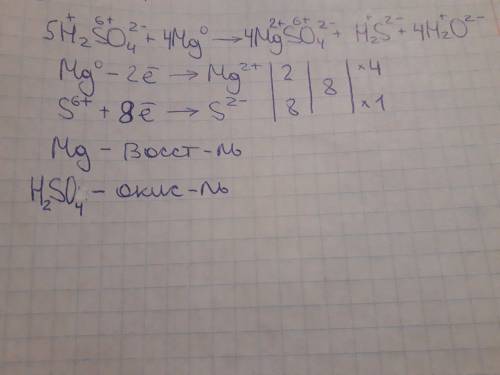 5H₂⁺S⁶⁺O₄²⁻ + 4Mg⁰ → 4Mg²⁺S⁶⁺O₄²⁻ + H₂⁺S²⁻ + 4H₂⁺O²⁻
Mg⁰ – 2ē → Mg²⁺ | 2 | 8 | ×4
S⁶⁺ + 8ē → S²⁻ | 8 | | ×1
Mg – восст-ль
H₂SO₄ – окис-ль